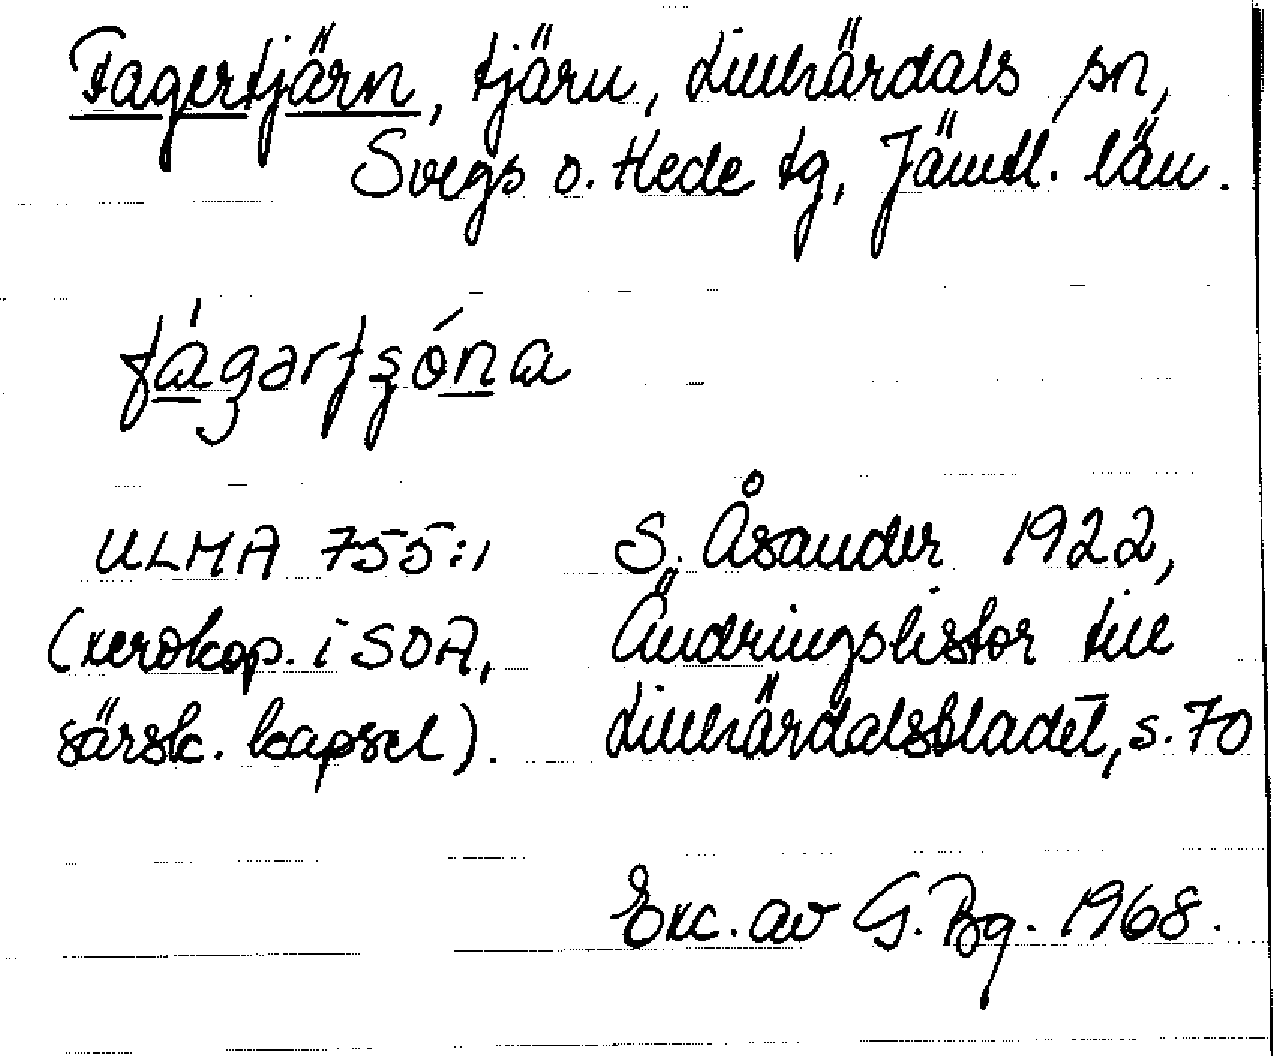 Fagertjärn, tjärn, Lillhärdals sn,
Svegs o. Hede tg, Jämtl. län.
ULMA 755:1
(xerokop. i SOA,
särsk. kapsel).
S. Åsander 1922,
Ändringslistor till
Lillhärdalsbladet, s. 70
Exc. av G. Bg. 1968.